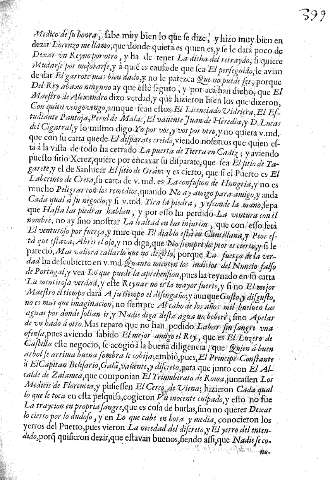 399
Medico de su honra, sabe muy bien lo que se dize, y hizo muy bien en
dezar Lorenço me llamo, que donde quiera es quien es, y se le dará poco de
Dexar un Reyno por otro, y ha de tener La dicha del retraydo, si quiere
Mudarse por mejorarse, y á qué es causa de que sea El perseguido, le avian
de dar El garrote mas bien dado, y no le parezca Que no puede ser, porque
Del Rey abaxo ninguno ay que esté seguro, y por acavan dicho, que El
Maestro de Alexandro dixo verdad, y que hizieron bien los que dixeron,
Con quien vengo vengo, aunque sean ellos El Licenciado Vidriera, El Es-
tudiante Pantoja, Pero del Mula, El valiente Juan de Heredia, y D. Lucas
del Cigarral, y lo mismo digo Yo por vos, y vos por otro, y no quiera v.md.
que con su carta quede El disparate creido, viendo nosotros que quien es-
tá à la villa de todo ha cerrado La puerta de Tierra en Cadiz; y aviendo
puesto sitio Xerez, quiere por encaxar su disparate, que sea El sitio de Ta-
garete, y el de Sanlucar El sitio de Gràve, y es cierto, que si el Puerto es El
Laberinto de Creta, la carta de v. md. es La confusion de Hungria, y no es
mucho Peligrar en los remedios, quando No ay amigo para amigo, y anda
Cada qual a su negocio, y si v.md. Tira la piedra, y esconde la mano, sepa
que Hasta las paredes hablan, y por esso ha perdido La ventura con el
nombre, no ay sino amistad La lealtad en las injurias, que con esso será
El venturoso por fuerça, y mire que El diablo está en Cantillana, y Peor es-
tá que estava, Abrir el ojo, y no diga, que No siempre lo peor es cierto, y si le
pareció, Mas valiera callarlo que no dezirlo, porque La fuerça de la ver-
dad ha descubierto en v.md. Quanto mienten los indicios del Nuncio falso
de Portugal, y vea Lo que puede la aprehension, pues ha reynado en su carta
La mentirosa verdad, y este Reynar no es la mayor suerte, y si no El mejor
Maestro el tiempo dará A su tiempo el desengaño; y aunque Gusto, y disgusto,
no es mas que imaginacion, no siempre Al cabo de los años mil buelven las
aguas por donde solian ir, y Nadie diga desta agua no beberé, sino Apelar
de un hado à otro. Mas reparo que no han pedido Labar sin sangre una
ofensa, pues aviendo sabido El mejor amigo el Rey, que es El Loçero de
Castilla este negocio, se acogió à la buena diligencia, que Quien à buen
arbol se arrima buena sombra le cobija, embió pues, El Principe Constante
à El Capitan Belisario, Galan, valiente, y discreto, para que junto con El Al-
calde de Zalamea, que componian El Triumbirato de Roma, juntassen Los
Medicis de Florencia, y pusiessen El Cerco de Viena; hizieron Cada qual
lo que le toca en esta pesquisa, cogieron Un montero culpado, y esto no fue
La traycion en propria sangre, que es cosa de burlas, sino no querer Dexar
lo cierto por lo dudoso, y en Lo que cabe en hora y media, conocieron los
yerros del Puerto, pues vieron La necedad del discreto, y El yerro del enten-
dido, porq̃ quisieron dezir, que estavan buenos, siendo assi, que Nadie se co-
no-